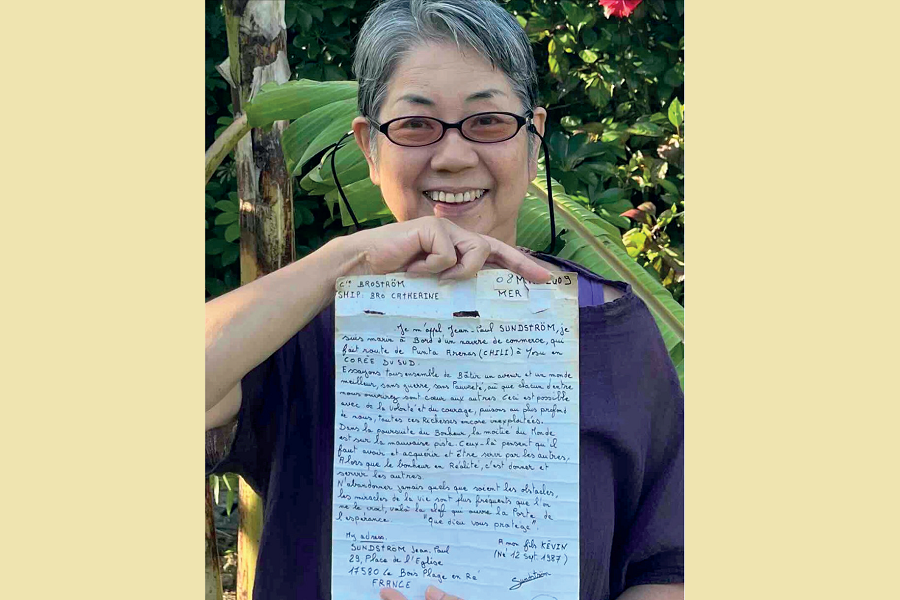 Cie BROSTRÖM 08 MAI 2009
SHIP BRO CATHERINE MER
Je m'appl Jean-Paul SUNDSTRÖM, je
suis marin à Bord d'un navire de commerce, qui
fait route de Punta Arenas (CHILI) à Yosu en
CORÉE DU SUD.
Essayons tous ensemble de Bâtir un avenir et un monde
meilleur, sans guerre, sans Pauvreté, où que chacun d'entre
nous ouvrirez son cœur aux autres. Ceci est possible
avec de la volonté et du courage, puisons au plus profond
de nous, toutes ces Richesses encore inexploitées.
Dans la poursuite du Bonheur, la moitié du Monde
est sur la mauvaise piste. Ceux-là pensent qu'il
faut avoir et acquérir et être servir par les autres,
Alors que le bonheur en Réalité, c'est donner et
servir les autres.
N'abandonner jamais quels que soient les obstacles,
les miracles de la vie sont plus fréquents que l'on
ne le croit, voilà la clef qui ouvre la Porte de
l'espérance. "Que dieu vous protège"
My adress.
SUNDSTRÖM Jean-Paul
29, Place de l'Eglise
17580 Le Bois Plage en Ré
FRANCE
A mon fils KÉVIN
(Né 12 Sept 1987)
Sundström